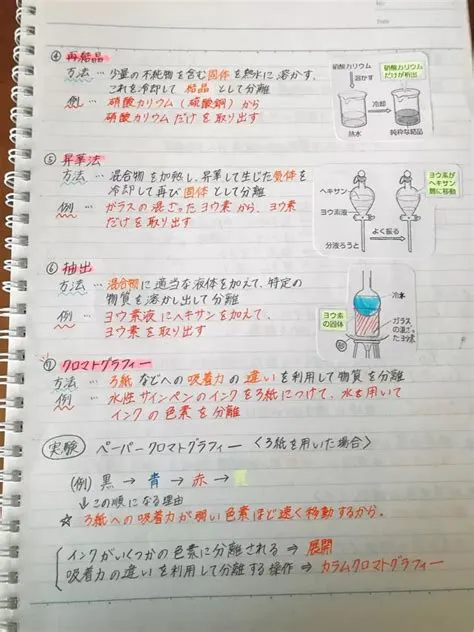 ④ 再結晶
方法 … 少量の不純物を含む固体を熱水に溶かす、
これを冷却して 結晶 として分離
例 … 硝酸カリウム(硫酸銅)から
硝酸カリウムだけを取り出す
硝酸カリウム
溶かす
硝酸カリウム
だけが析出
冷却
熱水
純粋な結晶
⑤ 昇華法
方法 … 混合物を加熱し、昇華して生じた気体を
冷却して再び固体として分離
例 … ガラスの混ざったヨウ素から、ヨウ素
だけを取り出す
ヘキサン
ヨウ素液
分液ろうと
よく振る
ヨウ素が
ヘキサン
層に移動
⑥ 抽出
方法 … 混合物に適当な液体を加えて、特定の
物質を溶かし出して分離
例 … ヨウ素液にヘキサンを加えて、
ヨウ素を取り出す
冷水
ヨウ素
の固体
ガラス
の混ざっ
たヨウ素
⑦ クロマトグラフィー
方法 … ろ紙などへの吸着力の違いを利用して物質を分離
例 … 水性サインペンのインクをろ紙につけて、水を用いて
インクの色素を分離
実験 ペーパークロマトグラフィー〈ろ紙を用いた場合〉
(例) 黒 → 青 → 赤 → 黄
↓この順になる理由
☆ ろ紙への吸着力が弱い色素ほど速く移動するから。
インクがいくつかの色素に分離される ⇒ 展開
吸着力の違いを利用して分離する操作 ⇒ カラムクロマトグラフィー